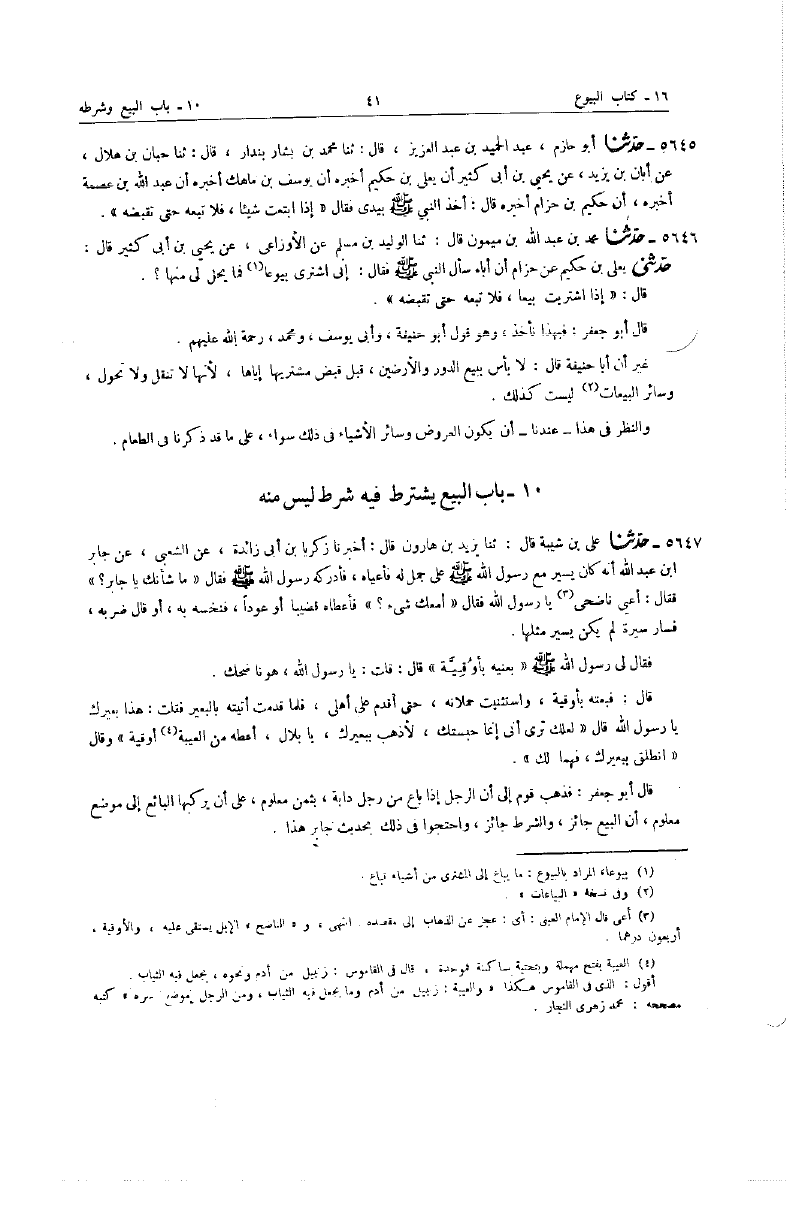 ١٦ - كتاب البيوع ٤١ ١٠ - باب البيع وشرطه
٥٦٤٥ - حدثنا أبو حازم ، عبد الحميد بن عبد العزيز ، قال : ثنا محمد بن بشار بندار ، قال : ثنا حبان بن هلال ،
عن أبان بن يزيد ، عن يحيى بن أبى كثير أن يعلى بن حكيم أخبره أن يوسف بن ماهك أخبره أن عبد الله بن عصمة
أخبره ، أن حكيم بن حزام أخبره قال : أخذ النبي ﷺ بيدى فقال « إذا ابتعت شيئا ، فلا تبعه حتى تقبضه » .
٥٦٤٦ - حدثنا محمد بن عبد الله بن ميمون قال : ثنا الوليد بن مسلم عن الأوزاعى ، عن يحيى بن أبى كثير قال :
حدثنى يعلى بن حكيم عن حزام أن أباه سأل النبي ﷺ فقال : إنى اشترى بيوعا(١) فما يحل لى منها ؟ .
قال : « إذا اشتريت بيعا ، فلا تبعه حتى تقبضه » .
قال أبو جعفر : فبهذا نأخذ ، وهو قول أبو حنيفة ، وأبى يوسف ، ومحمد ، رحمة الله عليهم .
غير أن أبا حنيفة قال : لا بأس ببيع الدور والأرضين ، قبل قبض مشتريها إياها ، لأنها لا تنقل ولا تحول ،
وسائر البيعات(٢) ليست كذلك .
والنظر فى هذا ــ عندنا ــ أن يكون العروض وسائر الأشياء فى ذلك سواء ، على ما قد ذكرنا فى الطعام .
١٠ - باب البيع يشترط فيه شرط ليس منه
٥٦٤٧ - حدثنا على بن شيبة قال : ثنا يزيد بن هارون قال : أخبرنا زكريا بن أبى زائدة ، عن الشعبي ، عن جابر
ابن عبد الله أنه كان يسير مع رسول الله ﷺ على جمل له فأعياه ، فأدركه رسول الله ﷺ فقال « ما شأنك يا جابر؟ »
فقال : أعيى ناضحى(٣) يا رسول الله فقال « أمعك شىء ؟ » فأعطاه قضيبا أو عوداً ، فنخسه به ، أو قال ضربه ،
فسار سيرة لم يكن يسير مثلها .
فقال لى رسول الله ﷺ « بعنيه بأوقيَّة » قال : قلت : يا رسول الله ، هو ناضحك .
قال : فبعته بأوقية ، واستثنيت حملانه ، حتى أقدم على أهلى ، فلما قدمت أتيته بالبعير فقلت : هذا بعيرك
يا رسول الله قال « لعلك ترى أنى إنما حبستك ، لأذهب ببعيرك ، يا بلال ، أعطه من العيبة(٤) أوقية » وقال
« انطلق ببعيرك ، فهما لك » .
قال أبو جعفر : فذهب قوم إلى أن الرجل إذا باع من رجل دابة ، بثمن معلوم ، على أن يركبها البائع إلى موضع
معلوم ، أن البيع جائز ، والشرط جائز ، واحتجوا فى ذلك بحديث جابر هذا .
(١) بيوعاء المراد بالبيوع : ما يباع إلى المشترى من أشياء تباع .
(٢) وفى نسخة « البياعات » .
(٣) أعى قال الإمام العينى : أى : عجز عن الذهاب إلى مقصده . انتهى ، و « الناضح » الإبل يستقى عليه ، والأوقية ،
أربعون درهما .
(٤) العيبة بفتح مهملة وبتحتية ساكنة فموحدة ، قال فى القاموس : زنبيل من أدم ونحوه ، يجعل فيه الثياب .
أقول : الذى فى القاموس هكذا « والعيبة : زنبيل من أدم وما يجعل فيه الثياب ، ومن الرجل موضع سره » كتبه
مصححه : محمد زهرى النجار .